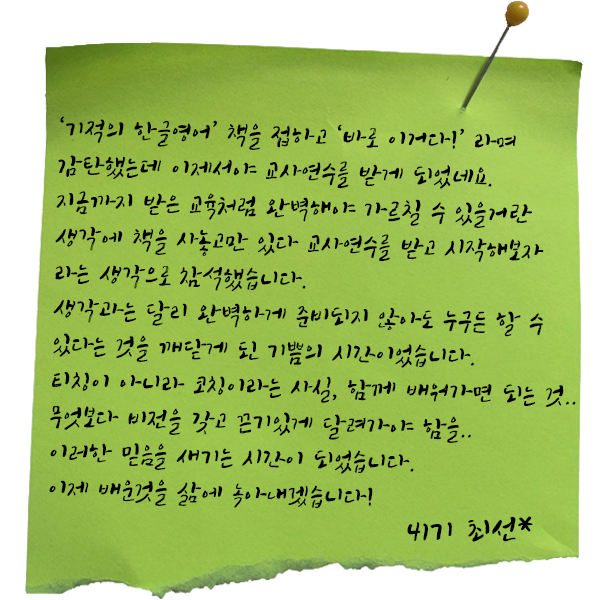 '기적의 한글영어' 책을 접하고 '바로 이거다!' 라며
감탄했는데 이제서야 교사연수를 받게 되었네요.
지금까지 받은 교육처럼 완벽해야 가르칠 수 있을거란
생각에 책을 사놓고만 있다 교사연수를 받고 시작해보자
라는 생각으로 참석했습니다.
생각과는 달리 완벽하게 준비되지 않아도 누구든 할 수
있다는 것을 깨닫게 된 기쁨의 시간이었습니다.
티칭이 아니라 코칭이라는 사실, 함께 배워가면 되는 것..
무엇보다 비전을 갖고 끈기있게 달려가야 함을..
이러한 믿음을 새기는 시간이 되었습니다.
이제 배운것을 삶에 녹아내겠습니다!
41기 최선*